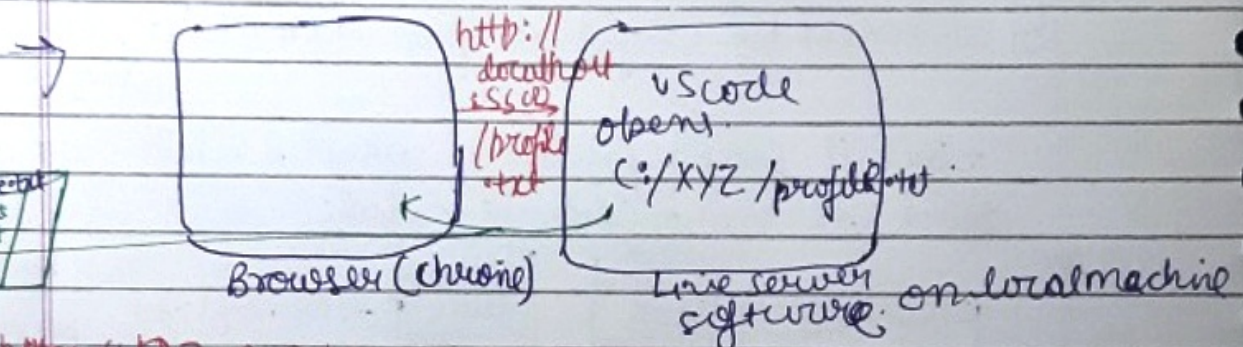 http://
localhost
:5500
/profile
.txt
vscode
opens.
C:/XYZ/profile.txt
Browser (Chrome)
Live server
software.
on localmachine